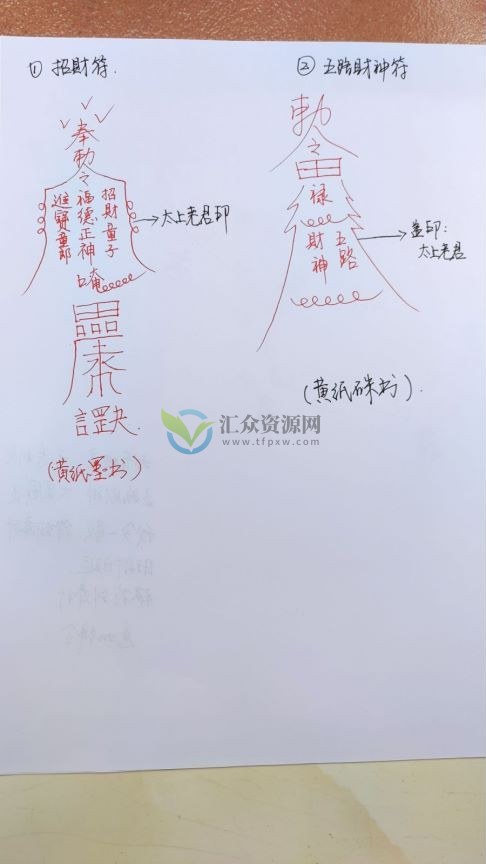 ① 招財符.
奉
勅
令
招財童子
福德正神
進寶童郎
唵
→太上老君印
(黄紙墨书)
② 五路財神符
勅
令
禄
五路
財神
→盖印:
太上老君
(黄紙硃书).
汇众资源网
www.tfpxw.com